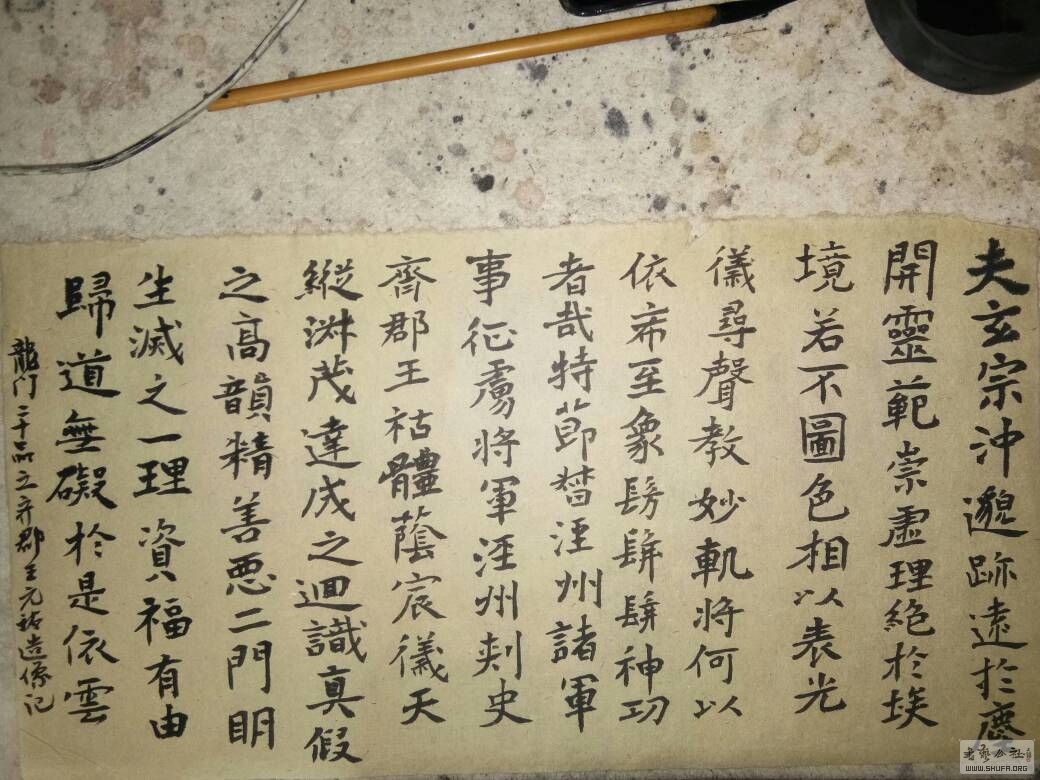 夫玄宗沖邈跡遠於塵
開靈範崇虛理絕於埃
境若不圖色相以表光
儀尋聲教妙軌將何以
依希至象髣髴髴神功
者哉特節督涇州諸軍
事征虜將軍涇州刾史
齊郡王祐體蔭宸儀天
縱淵茂達成之迴識真假
之高韻精善惡二門明
生滅之一理資福有由
歸道無礙於是依雲
龍门二十品之齐郡王元祐造像记
書藝公社
WWW.SHUFA.ORG